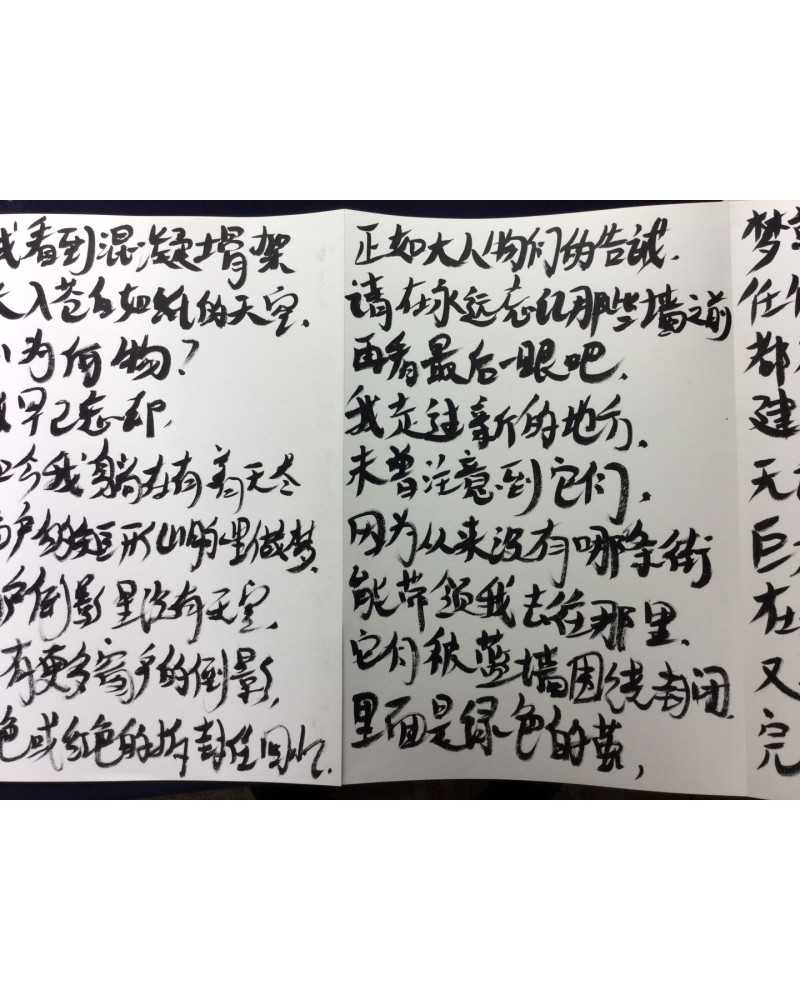 我看到混凝土骨架
入苍白如纸的天空.
为何物?
早已忘却,
今我躺在有着无尽
户的矩形山的里做梦.
户倒影里没有天空.
有更多窗户的倒影,
色或红色的 封住
正如大人物们的告诫.
请在永远忘记那些墙之前
再看最后一眼吧.
我走过新的地方.
未曾注意到它们,
因为从来没有哪条街
能带领我去往那里.
它们被蓝墙围绕封闭.
里面是绿色的茧,
梦
任
都
建
无
巨
在
又
完